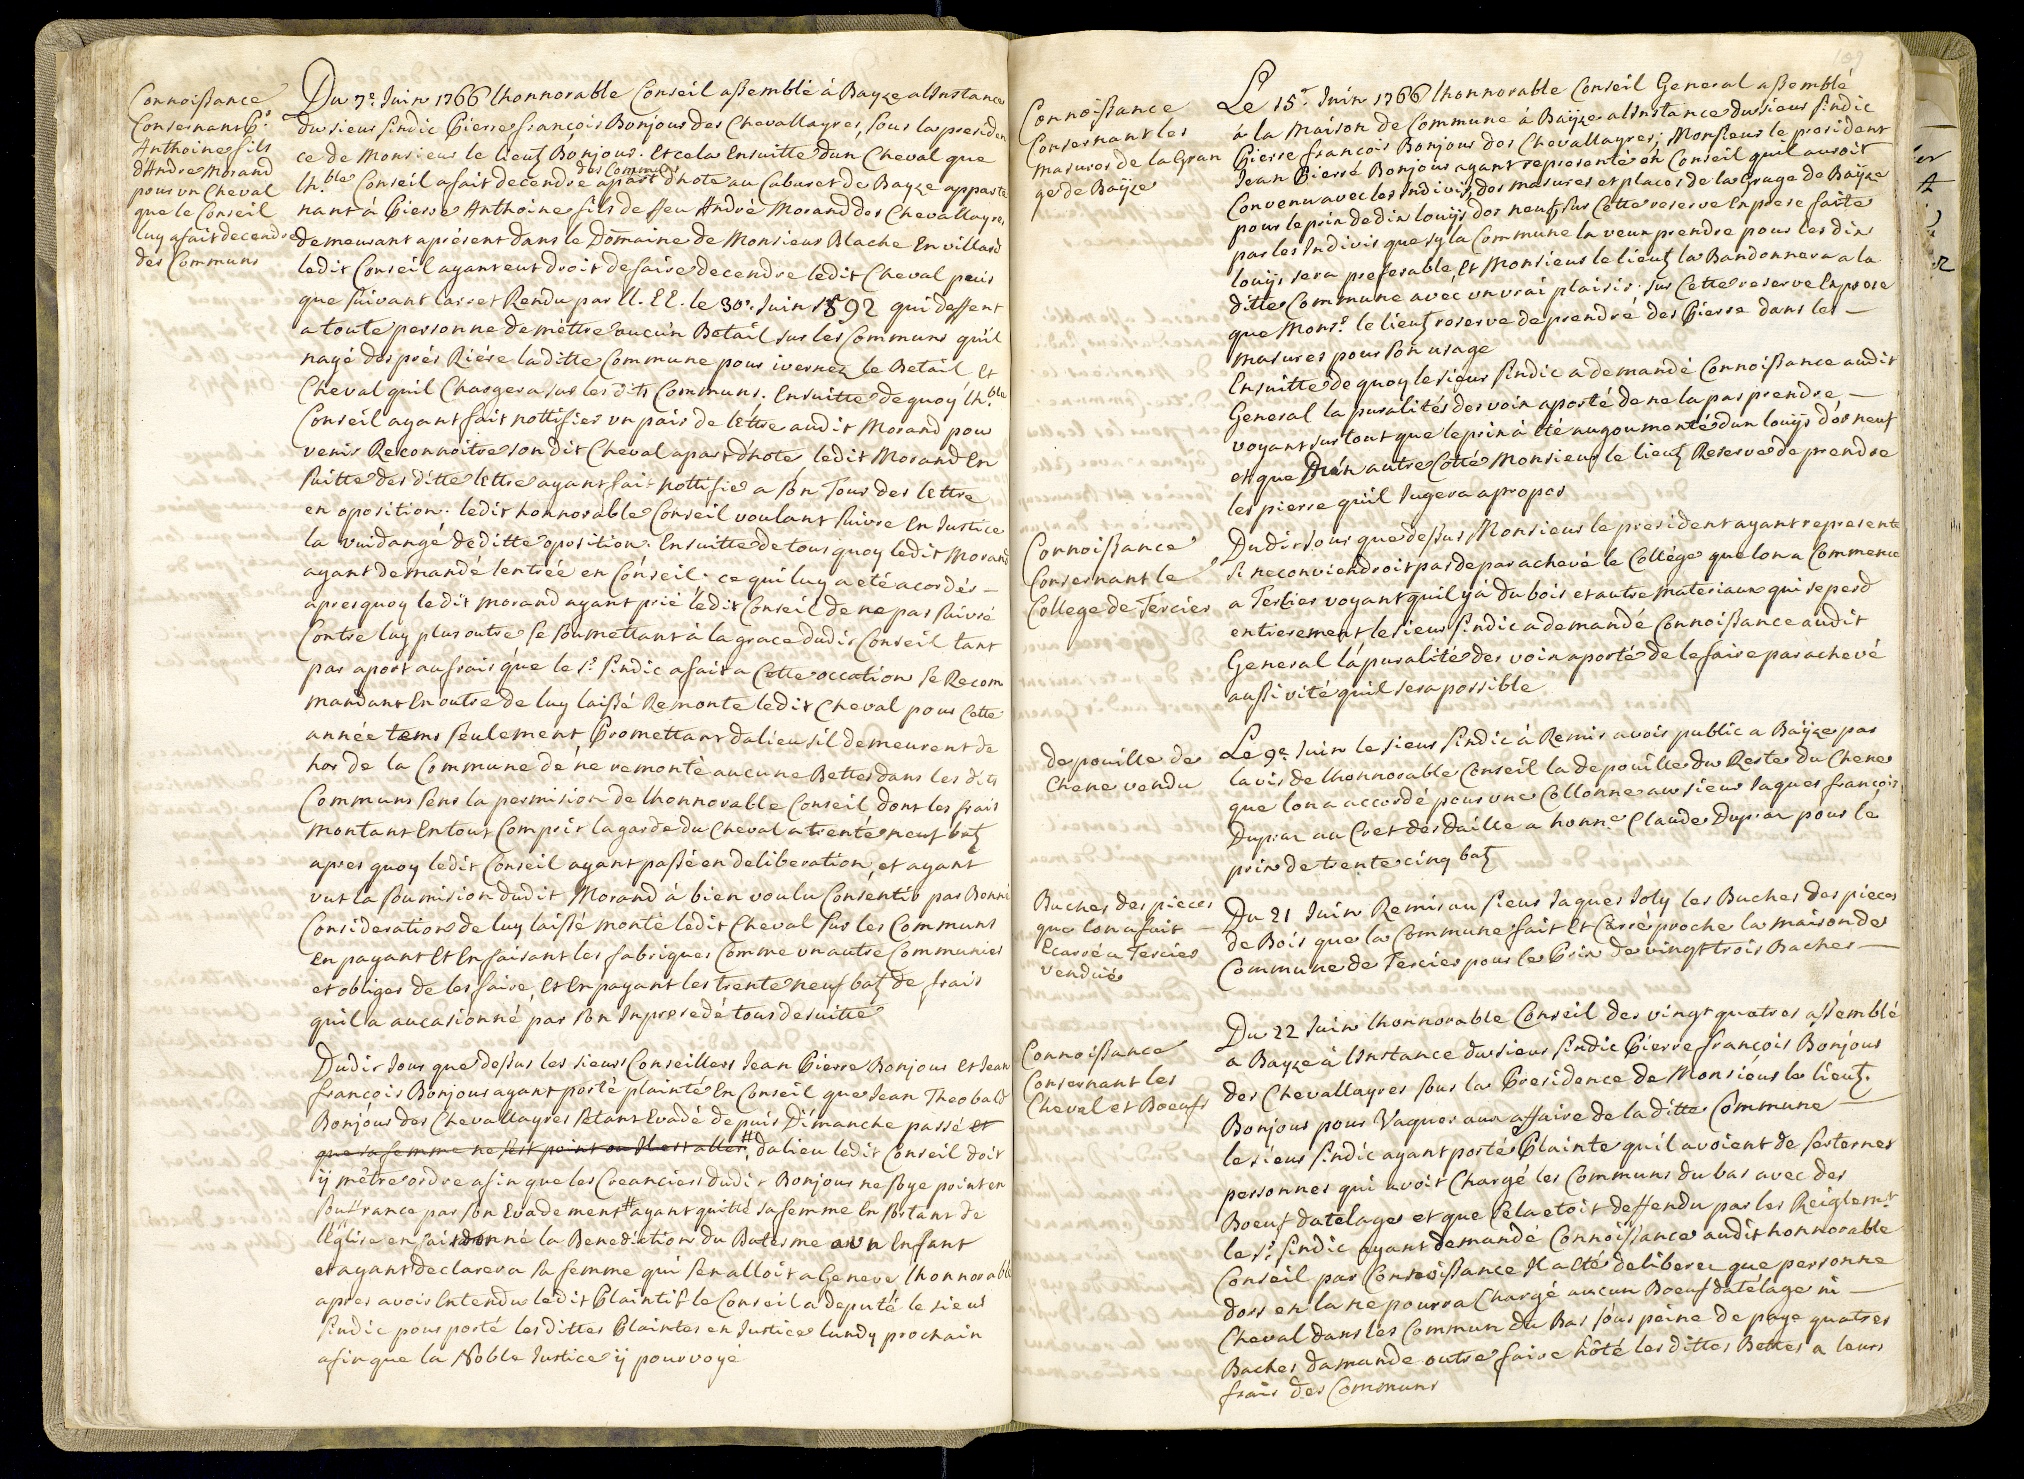 Connoissance
Consernant P.
Anthoine fils
d'André Morand
pour vn Cheval
que le Conseil
luy a fait decendre
des Communs
Du 7e. Juin 1766 lhonnorable Conseil assemblé à Bayze a linstance
du sieur sindic Pierre françois Bonjour des Chevallayres, sous la presiden
ce de Monsieur le lieut Bonjour. Et cela Ensuitte dun Cheval que
lh.ble Conseil a fait decendre des Communs apart dhote au Cabaret de Bayze apparte
nant à Pierre Anthoine fils de ffeu André Morand des Chevallayres
demeurant aprésent dans le Domaine de Monsieur Blache En villard
ledit Conseil ayant eut droit de faire decendre ledit Cheval puis
que suivant larret Rendu par LL. EE. le 30e. Juin 1592 qui deffent
a toute personne de mêttre aucun Betail sur les Communs qu'il
nayé des prés Riére laditte Commune pour ivernez le Betail Et
Cheval quil Chargera sur les dits Communs. Ensuitte de quoy lh.ble
Conseil ayant fait nottifier vn pair de lettre audit Morand pour
venir Reconnoitre son dit Cheval apart d'hote ledit Morand En
suitte des ditte lettre ayant fait nottifie a son Tour des lettre
en oposition. ledit honnorable Conseil voulant suivre En Justice
la vuidangé de ditte oposition. Ensuitte de tous quoy ledit Morand
ayant demandé lentrée en Conseil. ce qui luy a été acordés -
apres quoy le dit morand ayant prié ledit Conseil de ne pas suivré
Contre luy plus outre se soumettant à la grace dudit Conseil tant
par aport au frais que le sr. sindic a fait a Cette occation se Recom
mandant En outre de luy laissé Remonte ledit Cheval pour Cette
année tems seulement Promettant dalieu sil demeurent de
hor de la Commune dé ne remonté aucune Bettes dans les dits
Communs sens la permision de lhonnorable Conseil dont les frais
montant En tout Compris la garde du Cheval a trenté neuf batz
apres quoy ledit Conseil ayant passé en deliberation, et ayant
vut la soumision dudit Morand à bien voulu Consentir par Bonne
Consideration de luy laissé monté ledit Cheval sur les Communs
En payant Et En faisant les fabriques Comme vn autre Communier
et obliger de les faire, Et En payant les trente neuf batz de frais
quil a aucasionné par son Inprosedé tous de suitte
Dudit Jour que dessus les sieurs Conseillers Jean Pierre Bonjour Et Jean
françois Bonjour ayant porté plainte En Conseil que Jean Theobald
Bonjour des Chevallayres sétant Evadé depuis Dimanche passé et
que sa femme ne sest point ou Il est aller # dalieu ledit Conseil doit
ÿ mêtre ordre afin que les Creanciers dudit Bonjour ne soye point en
souffrance par son Evadement # ayant quitté sa femme En sortant de
l'Eglise en fait donné la Benediction du Batesme a vn Enfant
et ayant declarer a sa femme qui sen alloit a Geneve lhonnorable
apres avoir Entendu ledit Plaintif le Conseil a deputé le sieur
sindic pour porté les dittes Plaintes en Justice lundy prochain
afin que la Noble Justice ÿ pourvoyé
Connoissance
Consernant les
masures de la Gran
ge de Baÿze
Le 15e. Juin 1766 lhonnorable Conseil General assemblé
à la Maison de Commune à Baÿze a linstance du sieur sindic
Pierre francois Bonjour des Chevallayres; Monsieur le president
Jean Pierre Bonjour ayant representé en Conseil quil auroit
Convenu avec les Indivis, des masures et places de la Grage de Baÿze
pour le prin de din louijs dor neuf sur Cette reserve Enprese faite
par les Indivis que sy la Commune la veux prendre pour les din
louijs sera preferable Et Monsieur le lieut la Bandonnera a la
ditte Commune avec un vrai plaisir. sur Cette reserve Enprese
que Monsr. le lieut reserve de prendré des Pierre dans les -
masures pour son usage
Ensuitte de quoy le sieur sindic a demandé Connoissance audit
General la puralités des voix a porté de ne la pas prendre -
voyant sur tout que le prin à été augoumentés dun louijs dor neuf
et que Dun autre Cotté Monsieur le lieut Reserve de prendre
les pierre quil Jugera apropos
Connoissance
Consernant le
College de Tercier
Dudit Jour que dessus Monsieur le president ayant represente
si ne conviendroit pas de parachevé le Collége que lon a Commence
a Tercier voyant quil ÿ à du bois et autre materiaux qui se perd
entierement le sieur sindic a demandé Connoissance audit
General lá puralité des voix a porté de le faire parachevé
aussi vité quil sera possible
depouille de
Chene vendu
Le 9e. Juin le sieur sindic à Remis avois public a Baÿze par
lavis de lhonnorable Conseil la depouille du Reste du Chene
que lon a accordé pour vne Collonne au sieur Jaques françois
Dupraz au Cret des daille a honne. Claude Dupraz pour le
prix de trente cinq batz
Buches des pieces
que lon a fait -
Ecarré a Tercier
venduës
Du 21 Juin Remis au sieur Jaques Joly les Buches des pieces
de Bois que la Commune fait Et Carré proche la maison de
Commune de Tercier pour le Prix de vingt trois Baches -
Connoissance
Consernant les
Cheval et Boeufs
Du 22 Juin lhonnorable Conseil des vingt quatres assemblé
a Bayze à linstance du sieur sindic Pierre françois Bonjour
des Chevallayres sous la Presidence de Monsieur le lieut.
Bonjour pour Vaquer aux affaire de la ditte Commune -
le sieur sindic ayant portés Plainte quil avoient de serternes
personnes qui avoit Chargé les Communs du bas avec des
Boeuf datelage et que Cela etoit deffendu par les Reiglem.t
le sr. sindic ayant demandé Connoissance audit honnorable
Conseil par Connoissance Il a étés deliberer que personne
dors en la ne pourra Chargé aucun Boeuf datélage ni -
Cheval dans les Commun du Bas sous peine de paye quatres
Baches damande outre faire hôté les dittes Bettes a leurs
frais des Communs